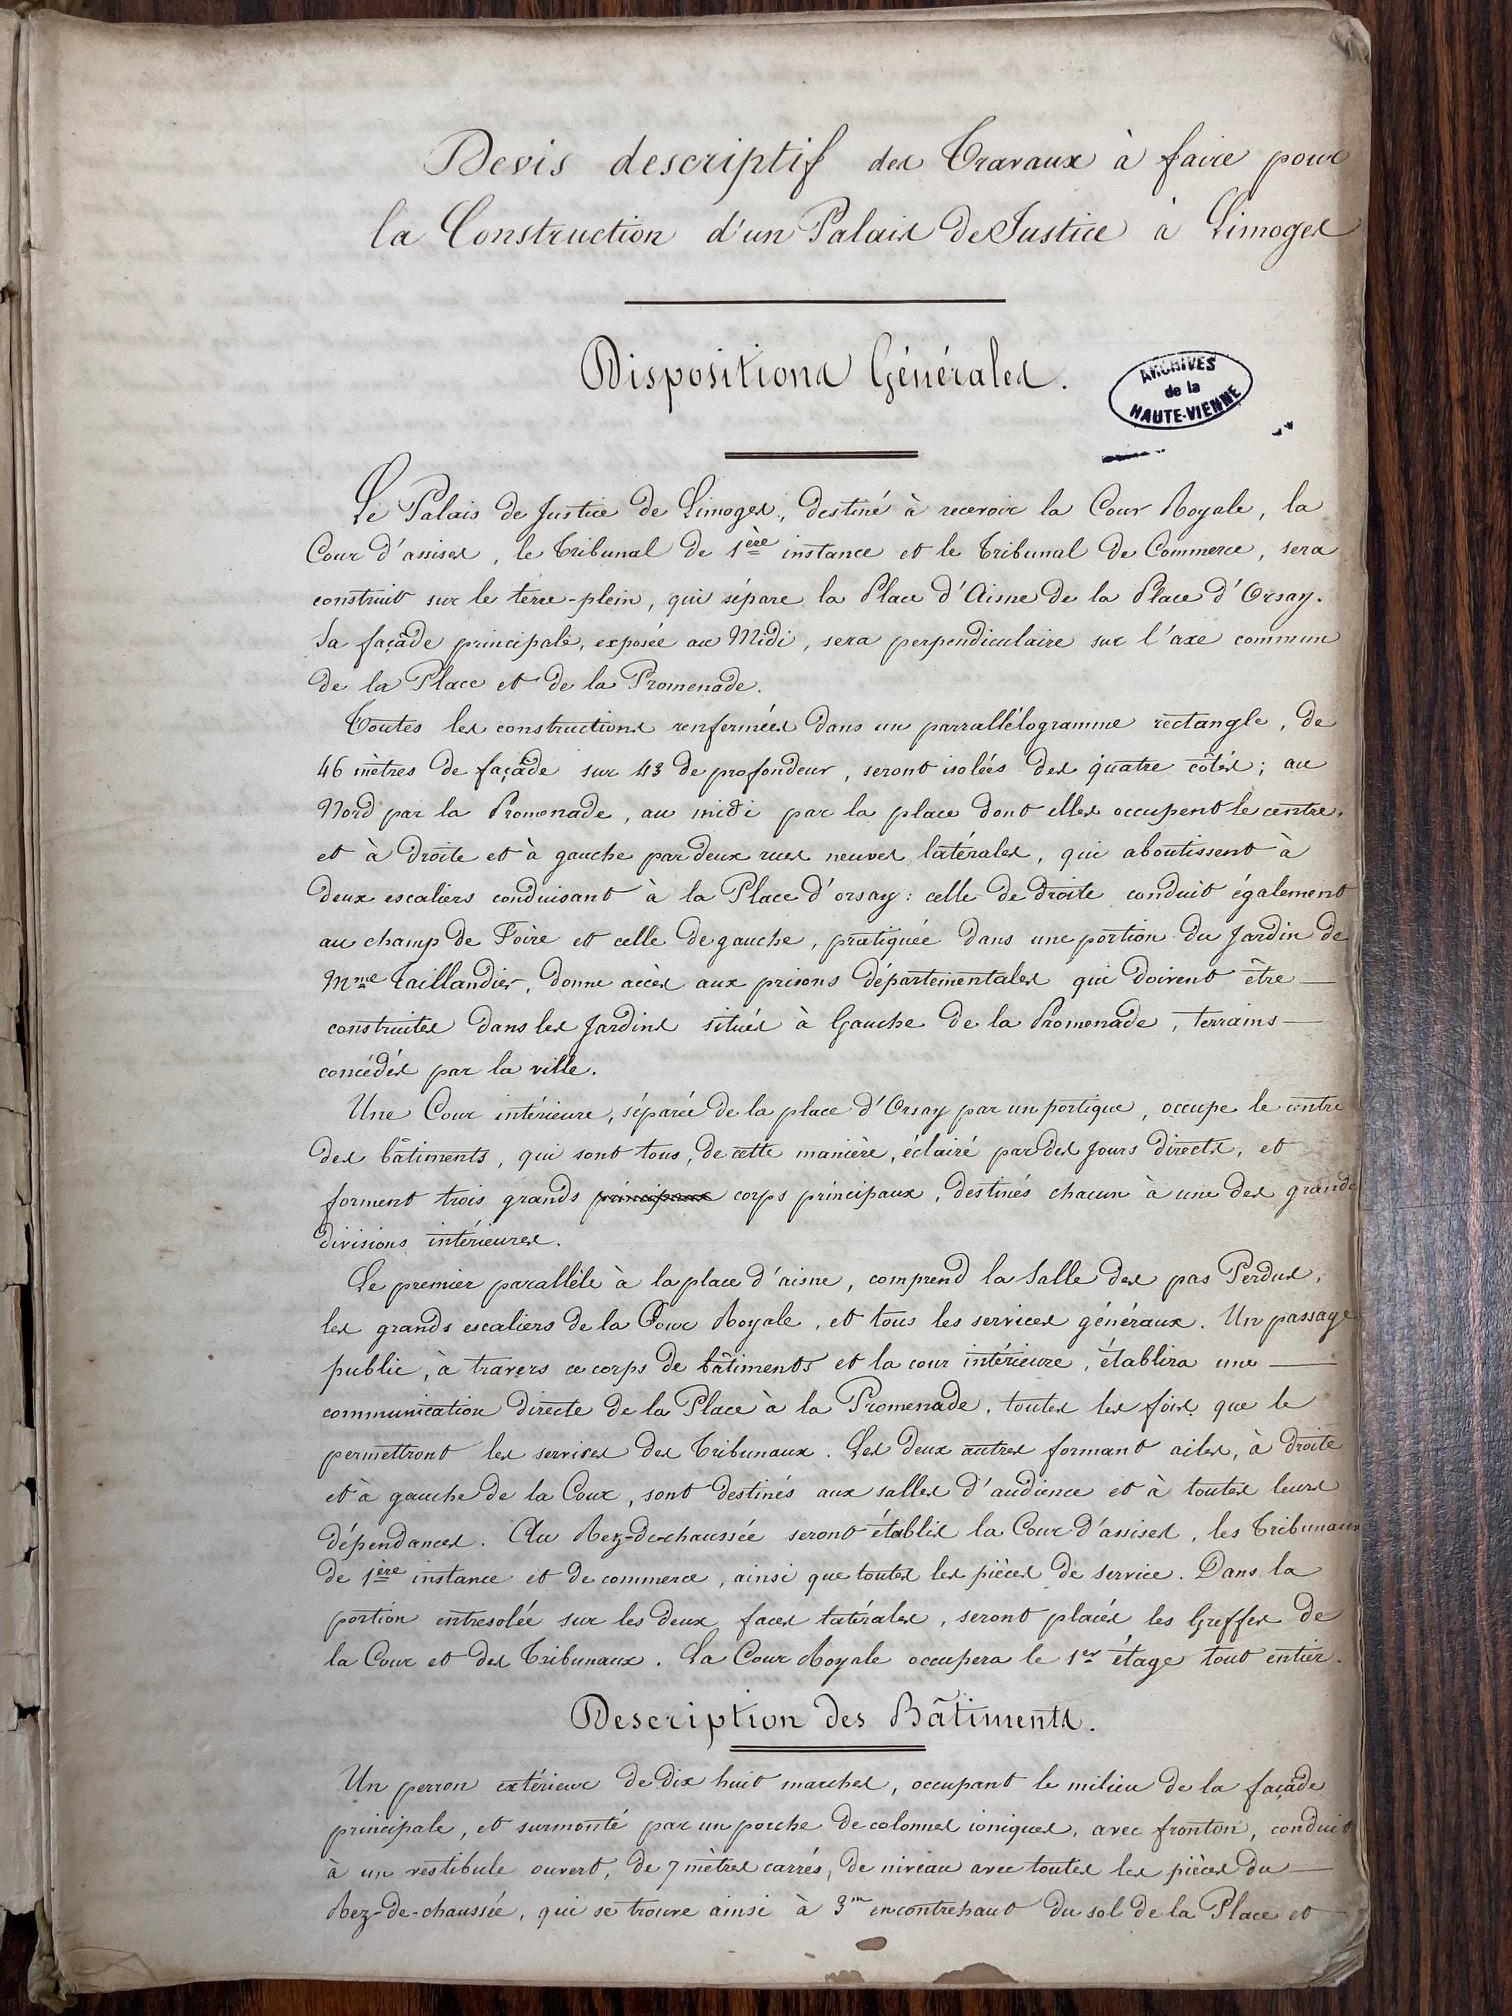 Devis descriptif des Travaux à faire pour
la Construction d'un Palais de Justice à Limoges
Dispositions Générales.
ARCHIVES
de la
HAUTE-VIENNE
Le Palais de Justice de Limoges, destiné à recevoir la Cour Royale, la
Cour d'assises, le Tribunal de 1ère instance et le Tribunal de Commerce, sera
construit sur le terre-plein, qui sépare la Place d'Aisne de la Place d'Orsay.
Sa façade principale, exposée au Midi, sera perpendiculaire sur l'axe commun
de la Place et de la Promenade.
Toutes les constructions renfermées dans un parrallélogramme rectangle, de
46 mètres de façade sur 43 de profondeur, seront isolées des quatre côtés; au
Nord par la Promenade, au midi par la place dont elles occupent le centre,
et à droite et à gauche par deux rues neuves latérales, qui aboutissent à
deux escaliers conduisant à la Place d'orsay: celle de droite conduit également
au champ de Foire et celle de gauche, pratiquée dans une portion du Jardin de
Mme Taillandier, donne accès aux prisons départementales qui doivent être
construites dans les Jardins situés à Gauche de la Promenade, terrains
concédés par la ville.
Une Cour intérieure, séparée de la place d'Orsay par un portique, occupe le centre
des bâtiments, qui sont tous, de cette manière, éclairé par des jours directs, et
forment trois grands principaux corps principaux, destinés chacun à une des grandes
divisions intérieures.
Le premier parallèle à la place d'aisne, comprend la Salle des pas Perdus,
les grands escaliers de la Cour Royale, et tous les services généraux. Un passage
public, à travers ce corps de bâtiments et la cour intérieure, établira une
communication directe de la Place à la Promenade, toutes les fois que le
permettront les services des Tribunaux. Les deux autres formant ailes, à droite
et à gauche de la Cour, sont destinés aux salles d'audience et à toutes leurs
dépendances. Au Rez-de-chaussée seront établis la Cour d'assises, les Tribunaux
de 1ère instance et de commerce, ainsi que toutes les pièces de service. Dans la
portion entresolée sur les deux faces latérales, seront placés les Greffes de
la Cour et des Tribunaux. La Cour Royale occupera le 1er étage tout entier.
Description des Bâtiments.
Un perron extérieur de dix huit marches, occupant le milieu de la façade
principale, et surmonté par un porche de colonnes ioniques, avec fronton, conduit
à un vestibule ouvert, de 7 mètres carrés, de niveau avec toutes les pièces du
Rez-de-chaussée, qui se trouve ainsi à 3m en contrehaut du sol de la Place et